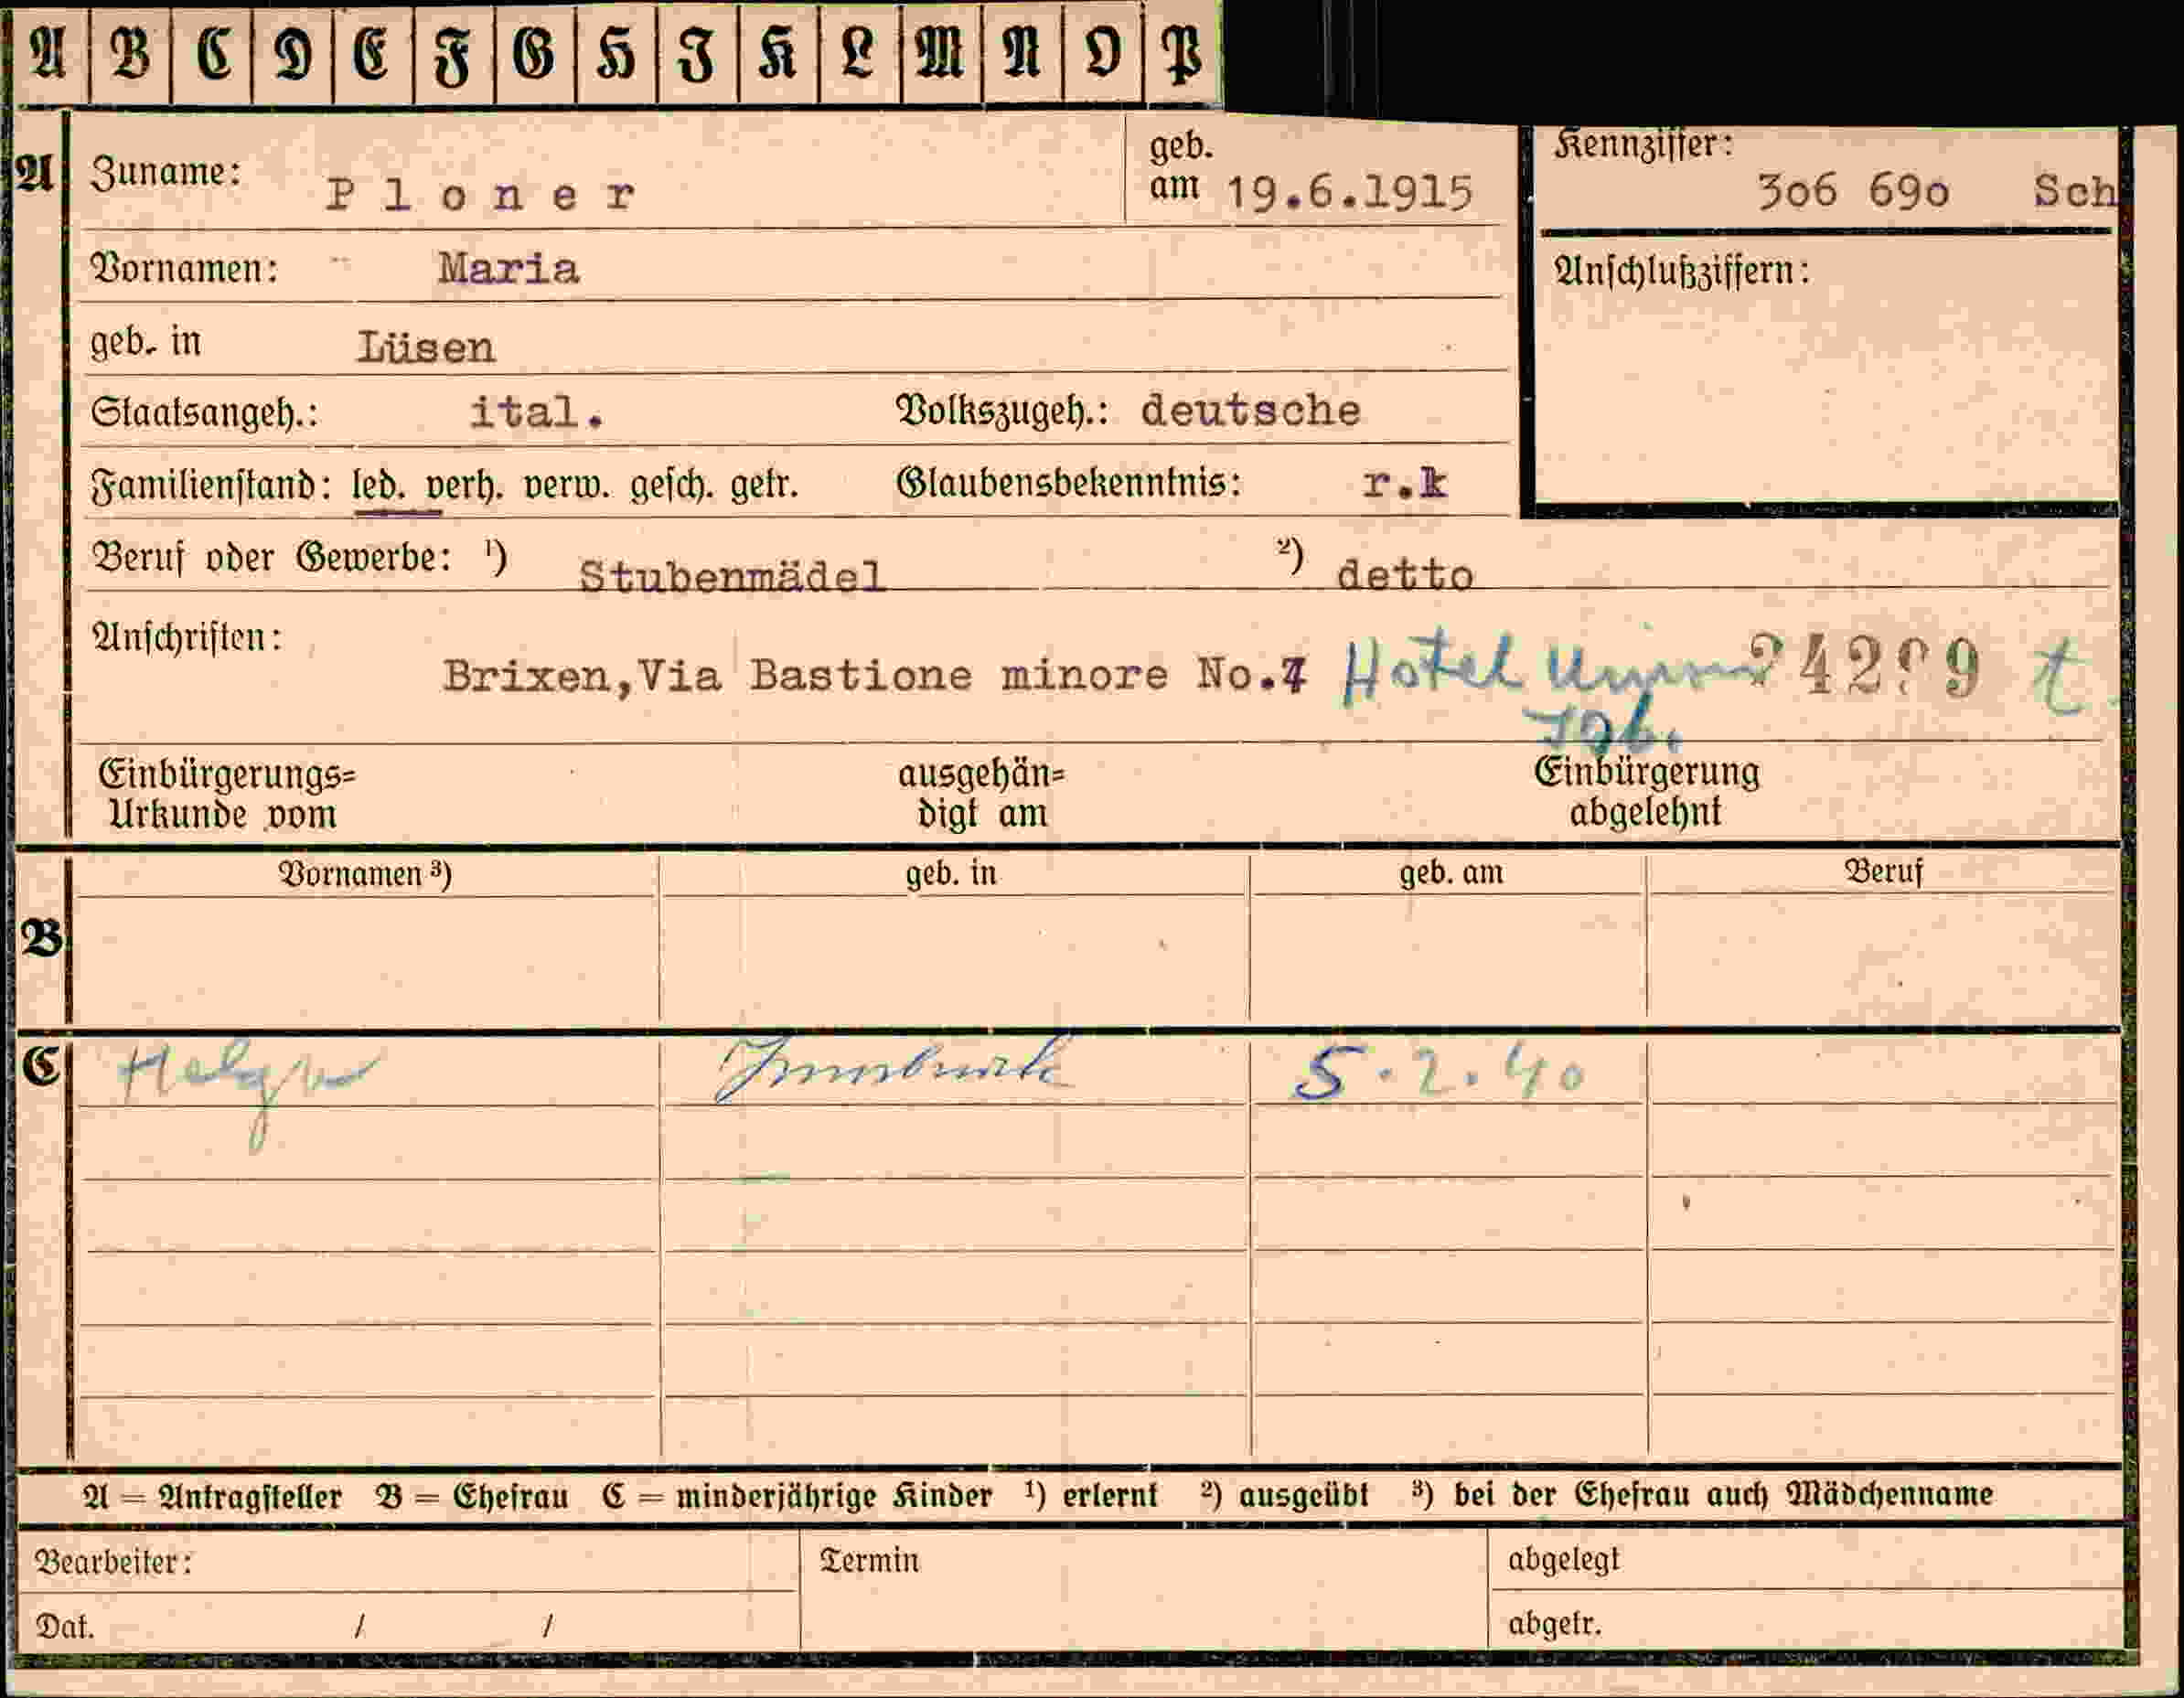 A B C D E F G H I K L M N O P
A Zuname: Ploner geb. am 19.6.1915 Kennziffer: 306 690 Sch
Vornamen: Maria Anschlußziffern:
geb. in Lüsen
Staatsangeh.: ital. Volkszugeh.: deutsche
Familienstand: led. verh. verw. gesch. getr. Glaubensbekenntnis: r.k
Beruf oder Gewerbe: ¹) Stubenmädel ²) detto
Anschriften:
Brixen, Via Bastione minore No.4 Hotel t
Jgb.
Einbürgerungs= ausgehän= Einbürgerung
Urkunde vom digt am abgelehnt
Vornamen ³) geb. in geb. am Beruf
B
C Helga Innsbruck 5.2.40
A = Antragsteller B = Ehefrau C = minderjährige Kinder ¹) erlernt ²) ausgeübt ³) bei der Ehefrau auch Mädchenname
Bearbeiter: Termin abgelegt
Dat. / / abgetr.